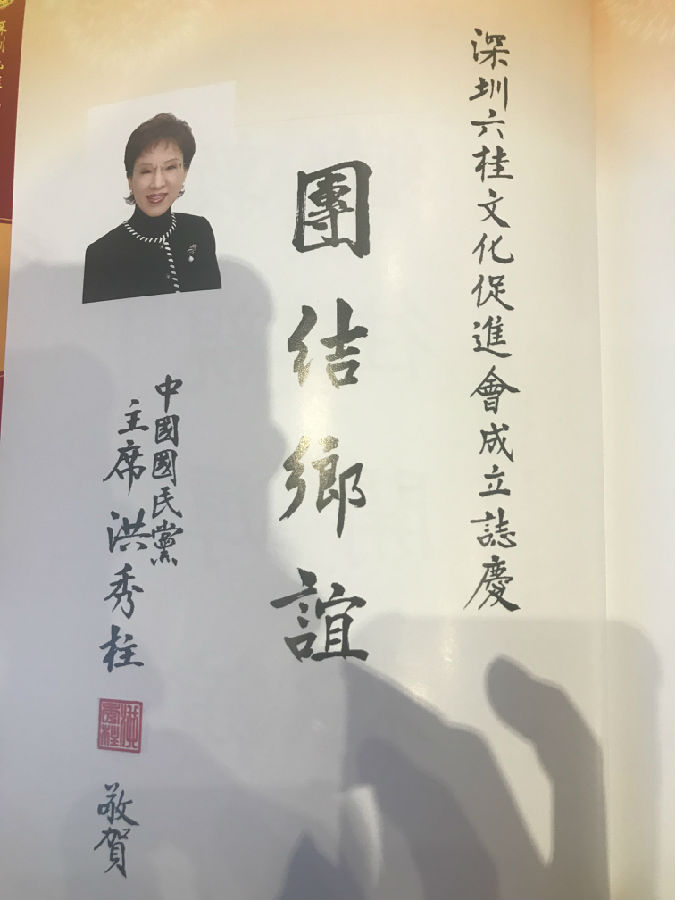 深圳六桂文化促進會成立誌慶
團結鄉誼
中國國民黨
主席洪秀柱
敬賀